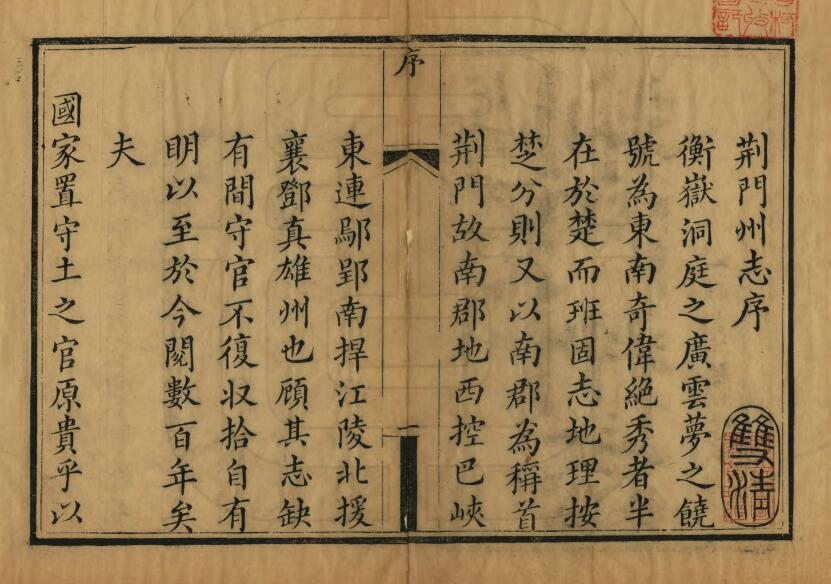 荆門州志序
衡嶽洞庭之廣雲夢之饒
號為東南奇偉絶秀者半
在於楚而班固志地理按
楚分則又以南郡為稱首
荆門故南郡地西控巴峽
序
一
東連鄢郢南捍江陵北援
襄鄧真雄州也顧其志缺
有間守官不復収拾自有
明以至於今閱數百年矣
夫
國家置守土之官原貴乎以
雙清